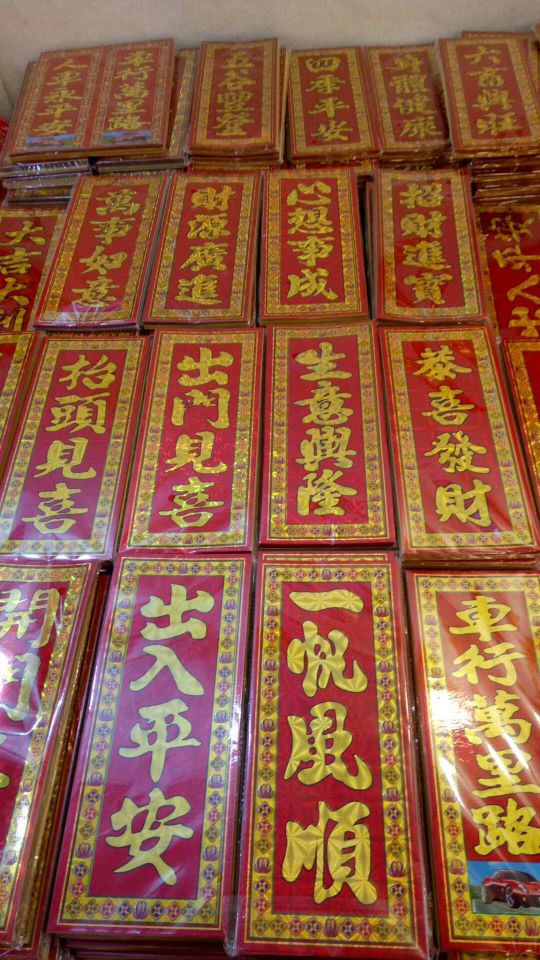 人車永平安
車行萬里路
五谷豐登
四季平安
身體健康
六畜興旺
大吉大利
萬事如意
財源廣進
心想事成
招財進寶
抬頭見喜
出門見喜
生意興隆
恭喜發財
出入平安
一帆風順
車行萬里路